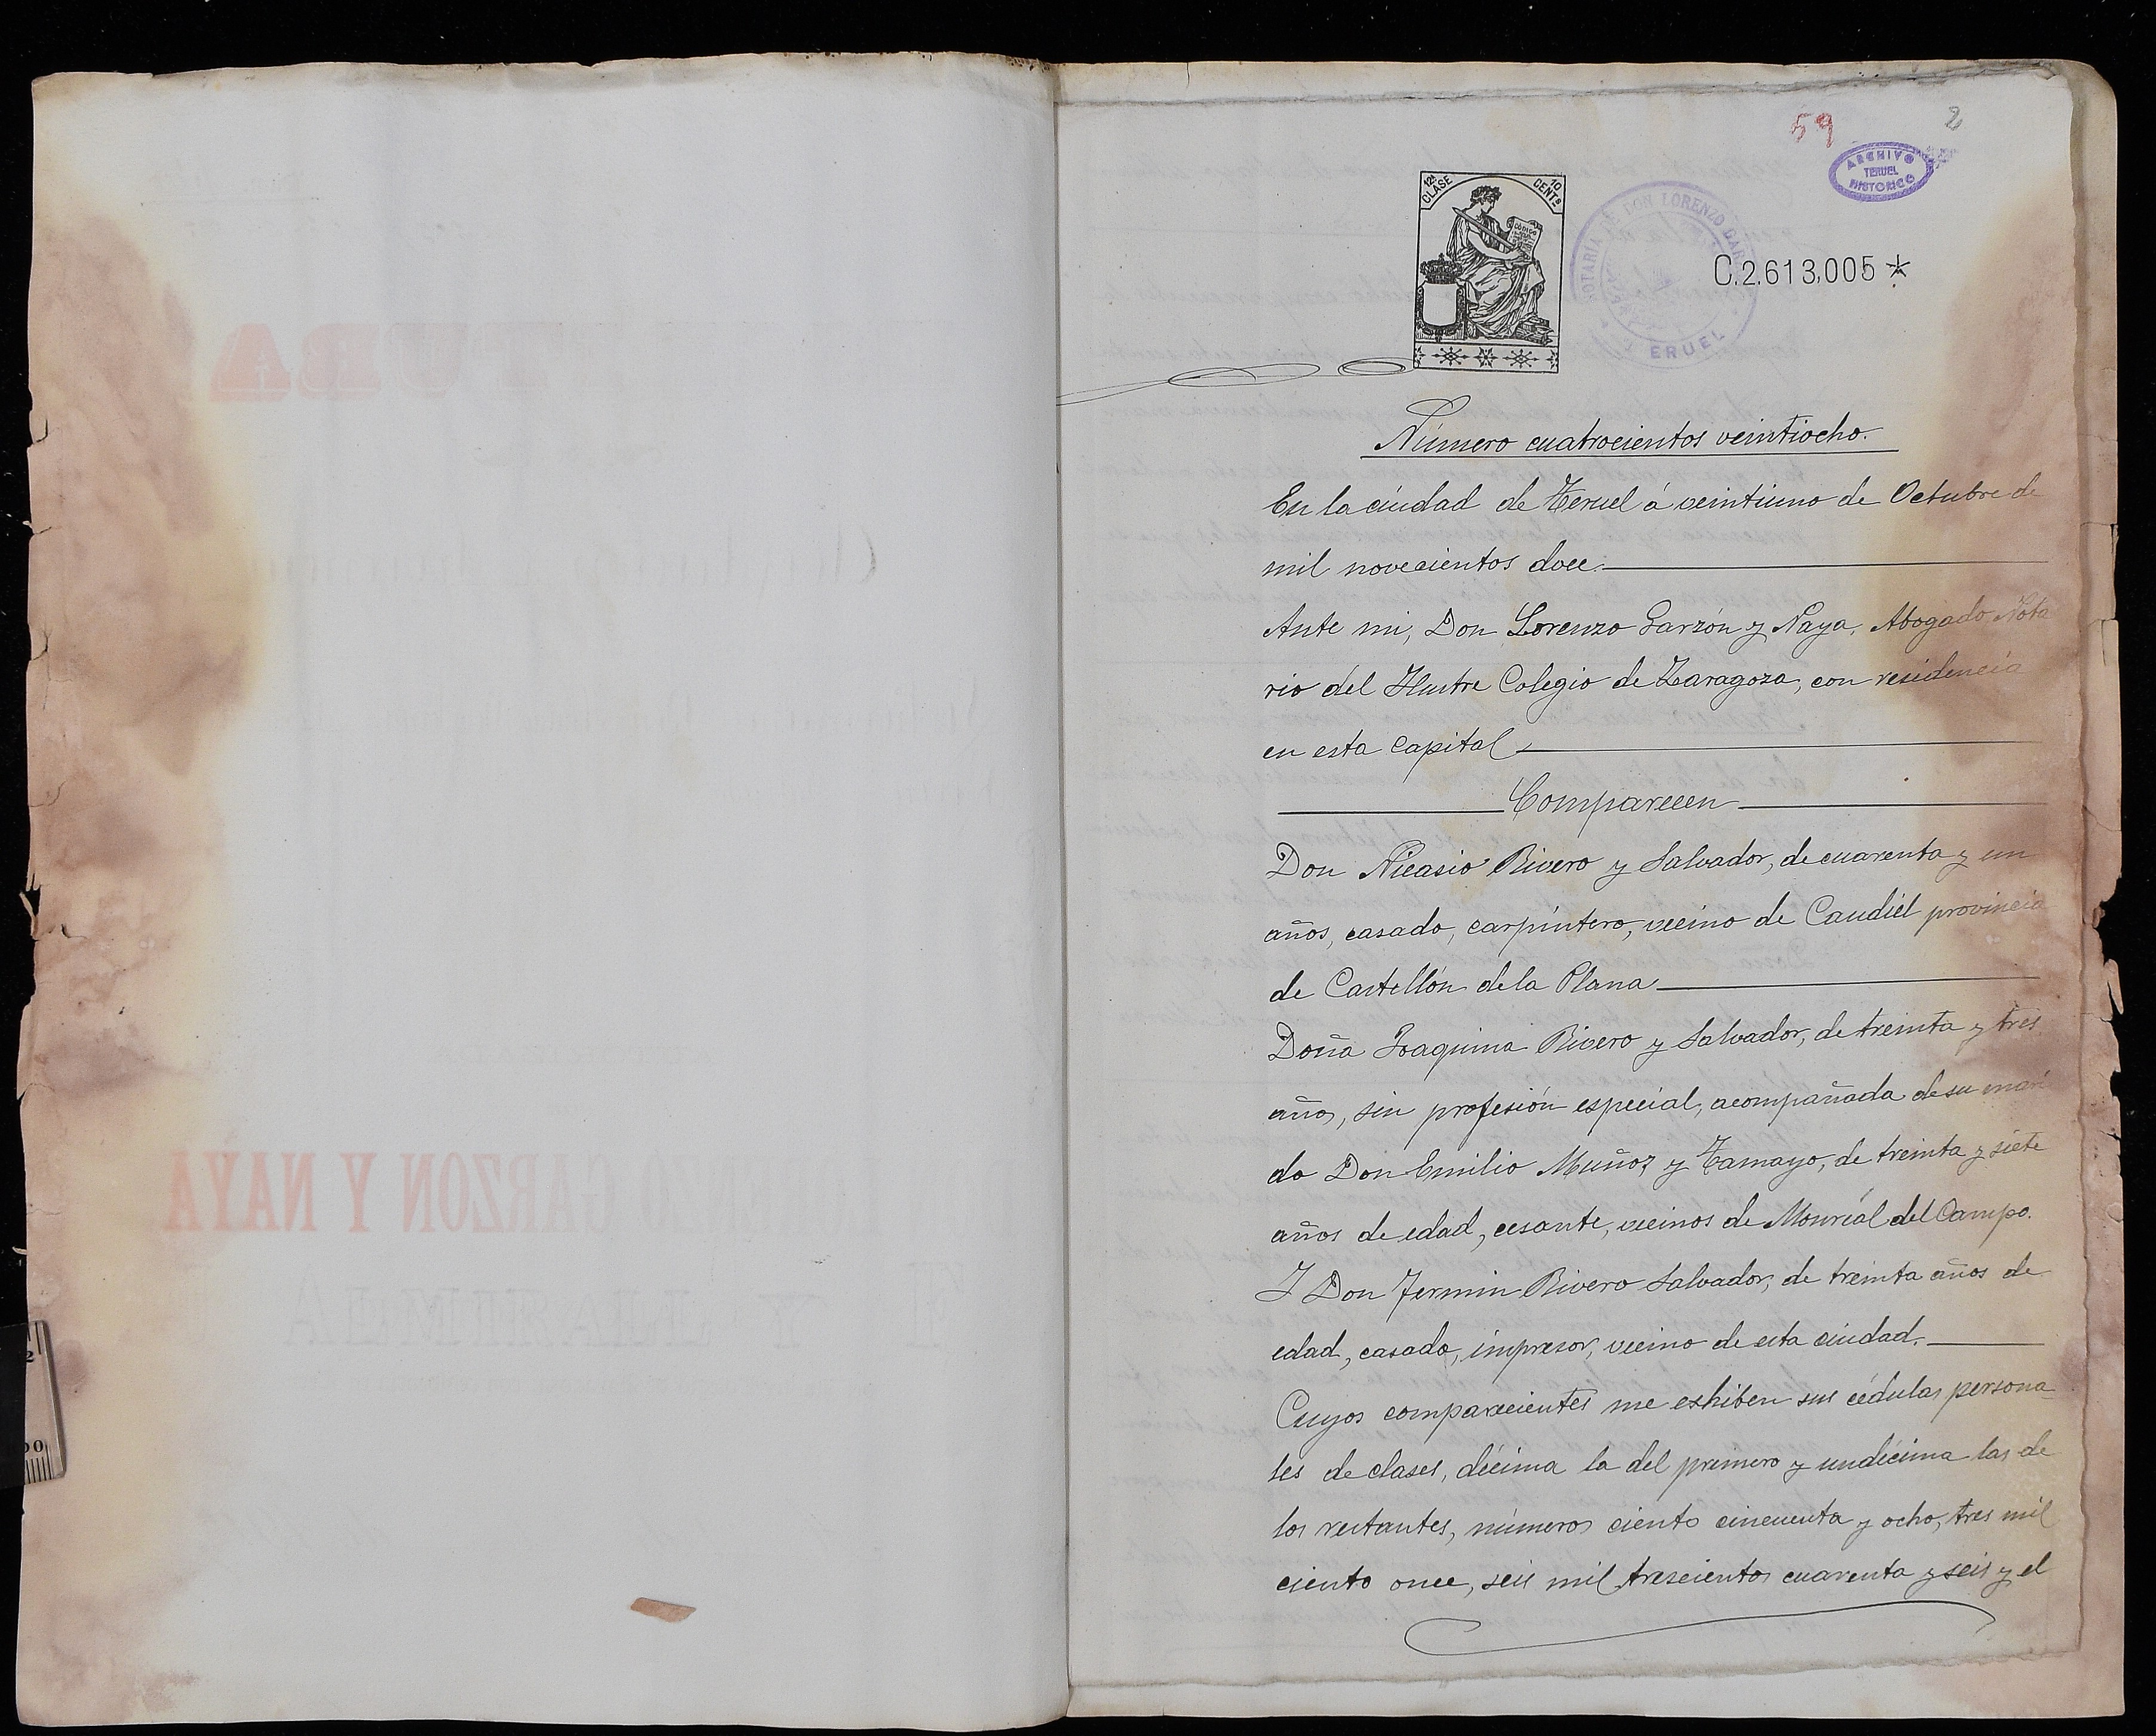 59
2
ARCHIVO
TERUEL
HISTORICO
12ª CLASE
10 CENTS
CODIGO
NOTARIA DE DON LORENZO GAR
TERUEL
C.2.613,005*
Número cuatrocientos veintiocho.
En la ciudad de Teruel á veintiuno de Octubre de
mil novecientos doce.
Ante mi, Don Lorenzo Garzón y Naya, Abogado Nota
rio del Ilustre Colegio de Zaragoza, con residencia
en esta Capital
Comparecen
Don Nicasio Rivero y Salvador, de cuarenta y un
años, casado, carpintero, vecino de Caudiel provincia
de Castellón de la Plana
Doña Joaquina Rivero y Salvador, de treinta y tres
años, sin profesión especial, acompañada de su mari
do Don Emilio Muñoz y Tamayo, de treinta y siete
años de edad, cesante, vecinos de Monreal del Campo.
Y Don Fermin Rivero Salvador, de treinta años de
edad, casado, impresor, vecino de esta ciudad.
Cuyos comparecientes me exhiben sus cédulas persona
les de clases, décima la del primero y undécima las de
los restantes, números ciento cincuenta y ocho, tres mil
ciento once, seis mil trescientos cuarenta y seis y el
GARZON Y NAYA